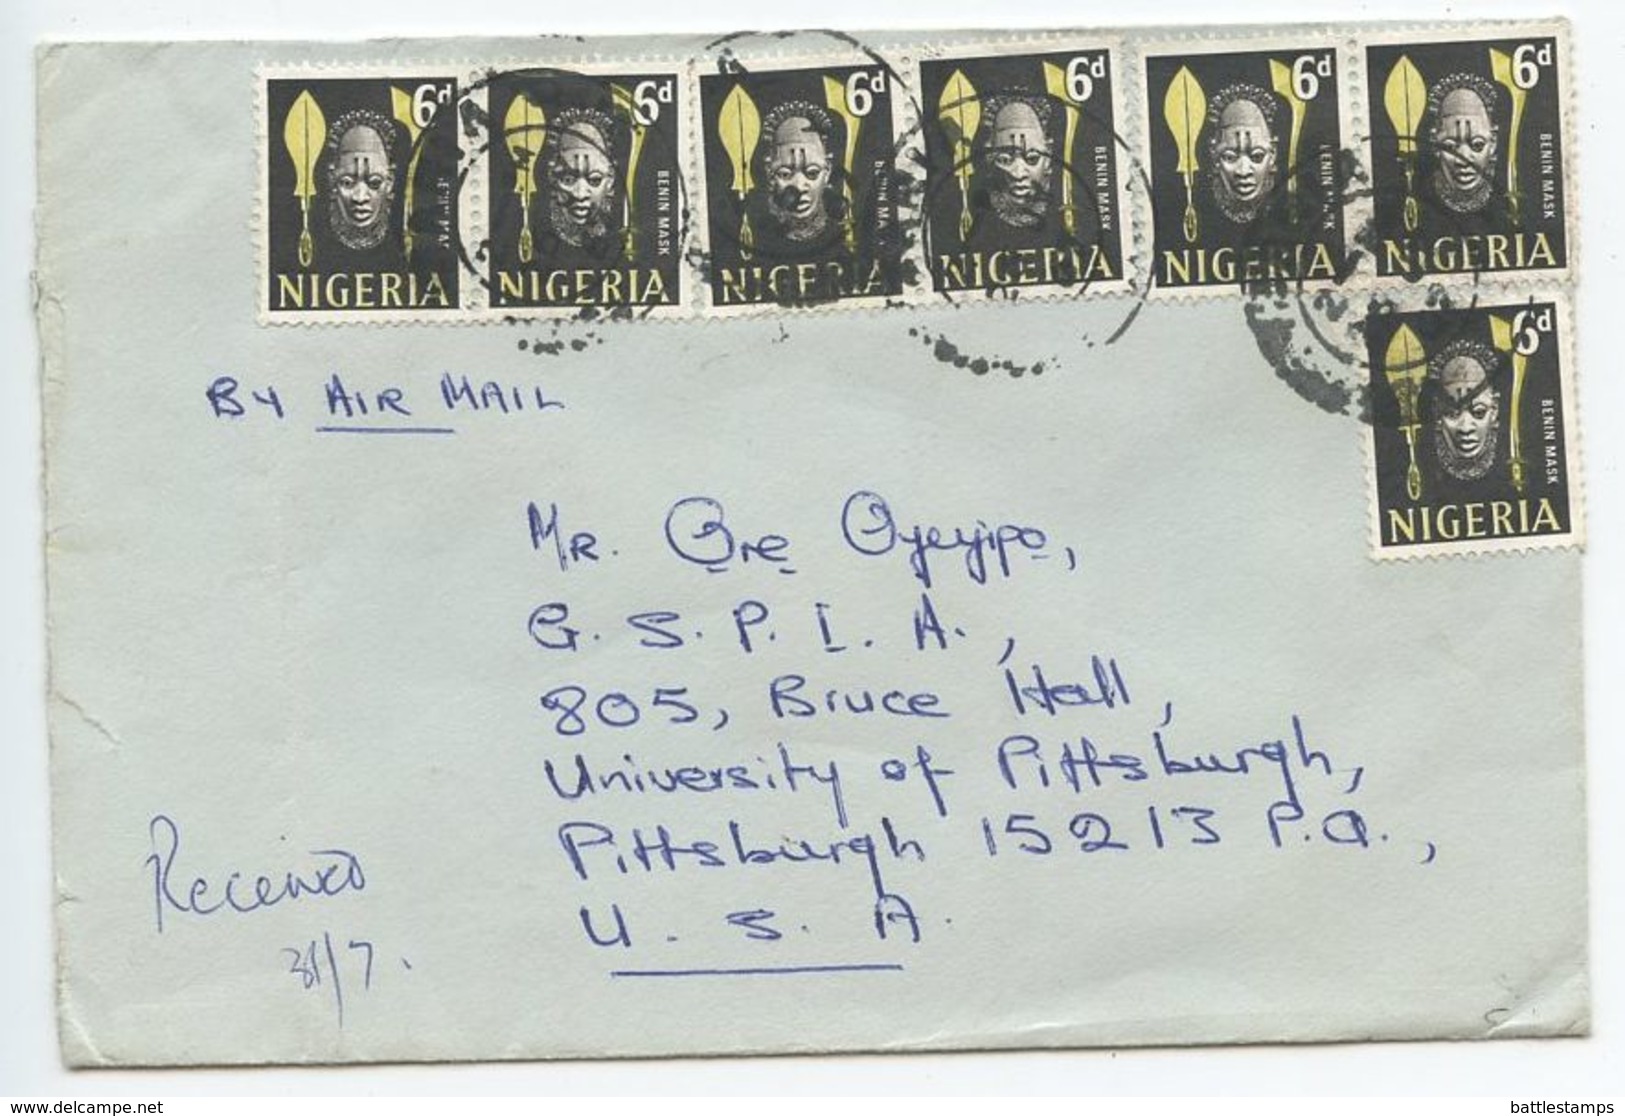 6d BENIN MASK NIGERIA
6d BENIN MASK NIGERIA
6d BENIN MASK NIGERIA
6d BENIN MASK NIGERIA
6d BENIN MASK NIGERIA
6d BENIN MASK NIGERIA
6d BENIN MASK NIGERIA
BY AIR MAIL
MR. Ọrẹ Oyeyipọ,
G. S. P. I. A.,
805, Bruce Hall,
University of Pittsburgh,
Pittsburgh 15213 P.a.,
U. S. A.
Received
31/7.
www.delcampe.net
battlestamps